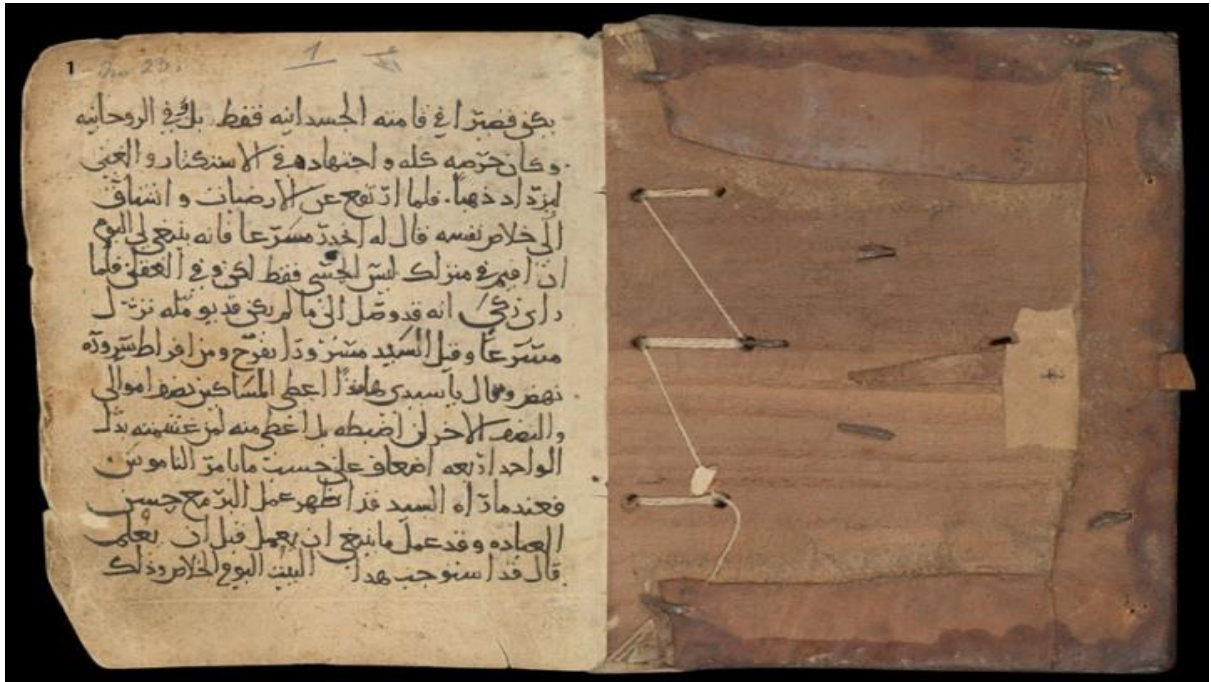 1
1
يكن قصيرا في قامته الجسدانيه فقط بل وفي الروحانيه
وكان حرصه كله واجتهاده في الاستكثار والغنى
ليزداد ذهبا. فلما ارتفع عن الارضيات واشتاق
الى خلاص نفسه قال له انحدر مسرعا فانه ينبغي لي اليوم
ان اقيم في منزلك ليس الحسي فقط لكن وفي العقلي فلما
راى زكى انه قد وصل الى ما لم يكن قد يومله نزل
مسرعا وقبل السيد مسرورا بفرح ومن افراط سروره
نهض وقال يا سيدي هاندا اعطي المساكين نصف اموالي
والنصف الاخر لن اضبطه بل اعطي منه لمن غشمته بدل
الواحد اربعه اضعاف على حسب ما يامر الناموس
فعندما راه السيد قد اظهر عمل البر مع حسن
العباده وقد عمل ما ينبغي ان يعمل قبل ان يعلم
قال قد استوجب هدا البيت اليوم الخلاص وذلك